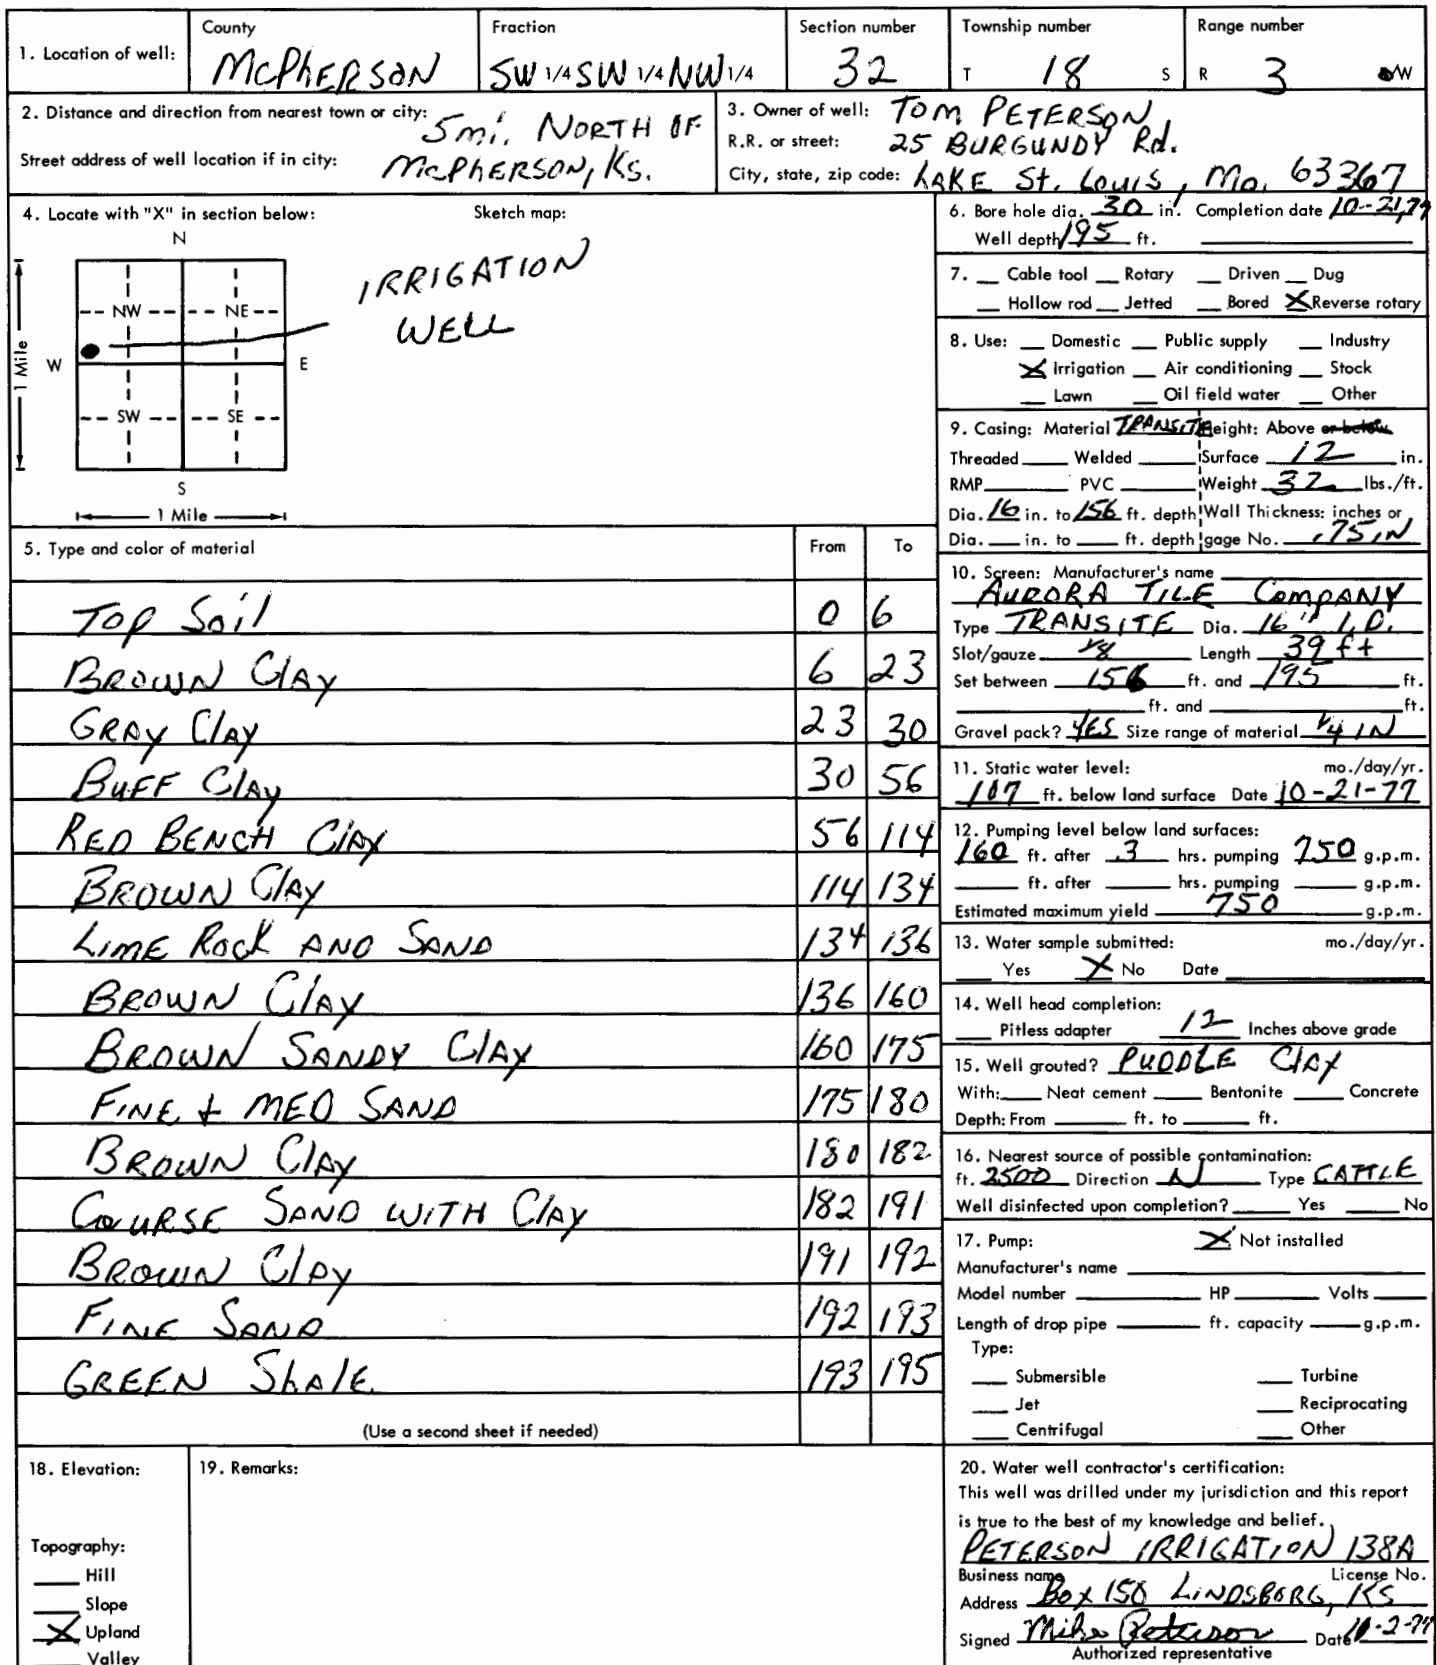 1. Location of well: County McPHERSON Fraction SW 1/4 SW 1/4 NW 1/4 Section number 32 Township number T 18 S Range number R 3 W
2. Distance and direction from nearest town or city: 5mi. NORTH OF
Street address of well location if in city: McPHERSON, Ks.
3. Owner of well: TOM PETERSON
R.R. or street: 25 BURGUNDY Rd.
City, state, zip code: LAKE St. Louis, Mo. 63367
4. Locate with "X" in section below: Sketch map:
N
NW NE
W E
SW SE
S
1 Mile
1 Mile
IRRIGATION
WELL
5. Type and color of material From To
Top Soil 0 6
BROWN Clay 6 23
GRAY Clay 23 30
BUFF Clay 30 56
RED BENCH Clay 56 114
BROWN Clay 114 134
LIME Rock AND SAND 134 136
BROWN Clay 136 160
BROWN SANDY Clay 160 175
FINE + MED SAND 175 180
BROWN Clay 180 182
COURSE SAND WITH Clay 182 191
BROWN Clay 191 192
FINE SAND 192 193
GREEN ShAlE 193 195
(Use a second sheet if needed)
6. Bore hole dia. 30 in. Completion date 10-21,77
Well depth 195 ft.
7. Cable tool Rotary Driven Dug
Hollow rod Jetted Bored X Reverse rotary
8. Use: Domestic Public supply Industry
X Irrigation Air conditioning Stock
Lawn Oil field water Other
9. Casing: Material TRANSITE Height: Above or below
Threaded Welded Surface 12 in.
RMP PVC Weight 32 lbs./ft.
Dia. 16 in. to 156 ft. depth Wall Thickness: inches or
Dia. in. to ft. depth gage No. .75 IN
10. Screen: Manufacturer's name
AURORA TILE COMPANY
Type TRANSITE Dia. 16" I.D.
Slot/gauze 1/8 Length 39 ft
Set between 156 ft. and 195 ft.
ft. and ft.
Gravel pack? YES Size range of material 1/4 IN
11. Static water level: mo./day/yr.
107 ft. below land surface Date 10-21-77
12. Pumping level below land surfaces:
160 ft. after .3 hrs. pumping 750 g.p.m.
ft. after hrs. pumping g.p.m.
Estimated maximum yield 750 g.p.m.
13. Water sample submitted: mo./day/yr.
Yes X No Date
14. Well head completion:
Pitless adapter 12 Inches above grade
15. Well grouted? PUDDLE Clay
With: Neat cement Bentonite Concrete
Depth: From ft. to ft.
16. Nearest source of possible contamination:
ft. 2500 Direction N Type CATTLE
Well disinfected upon completion? Yes No
17. Pump: X Not installed
Manufacturer's name
Model number HP Volts
Length of drop pipe ft. capacity g.p.m.
Type:
Submersible Turbine
Jet Reciprocating
Centrifugal Other
18. Elevation:
Topography:
Hill
Slope
X Upland
Valley
19. Remarks:
20. Water well contractor's certification:
This well was drilled under my jurisdiction and this report
is true to the best of my knowledge and belief.
PETERSON IRRIGATION 138A
Business name License No.
Address Box 150 LINDSBORG, KS
Signed Mike Peterson Date
Authorized representative